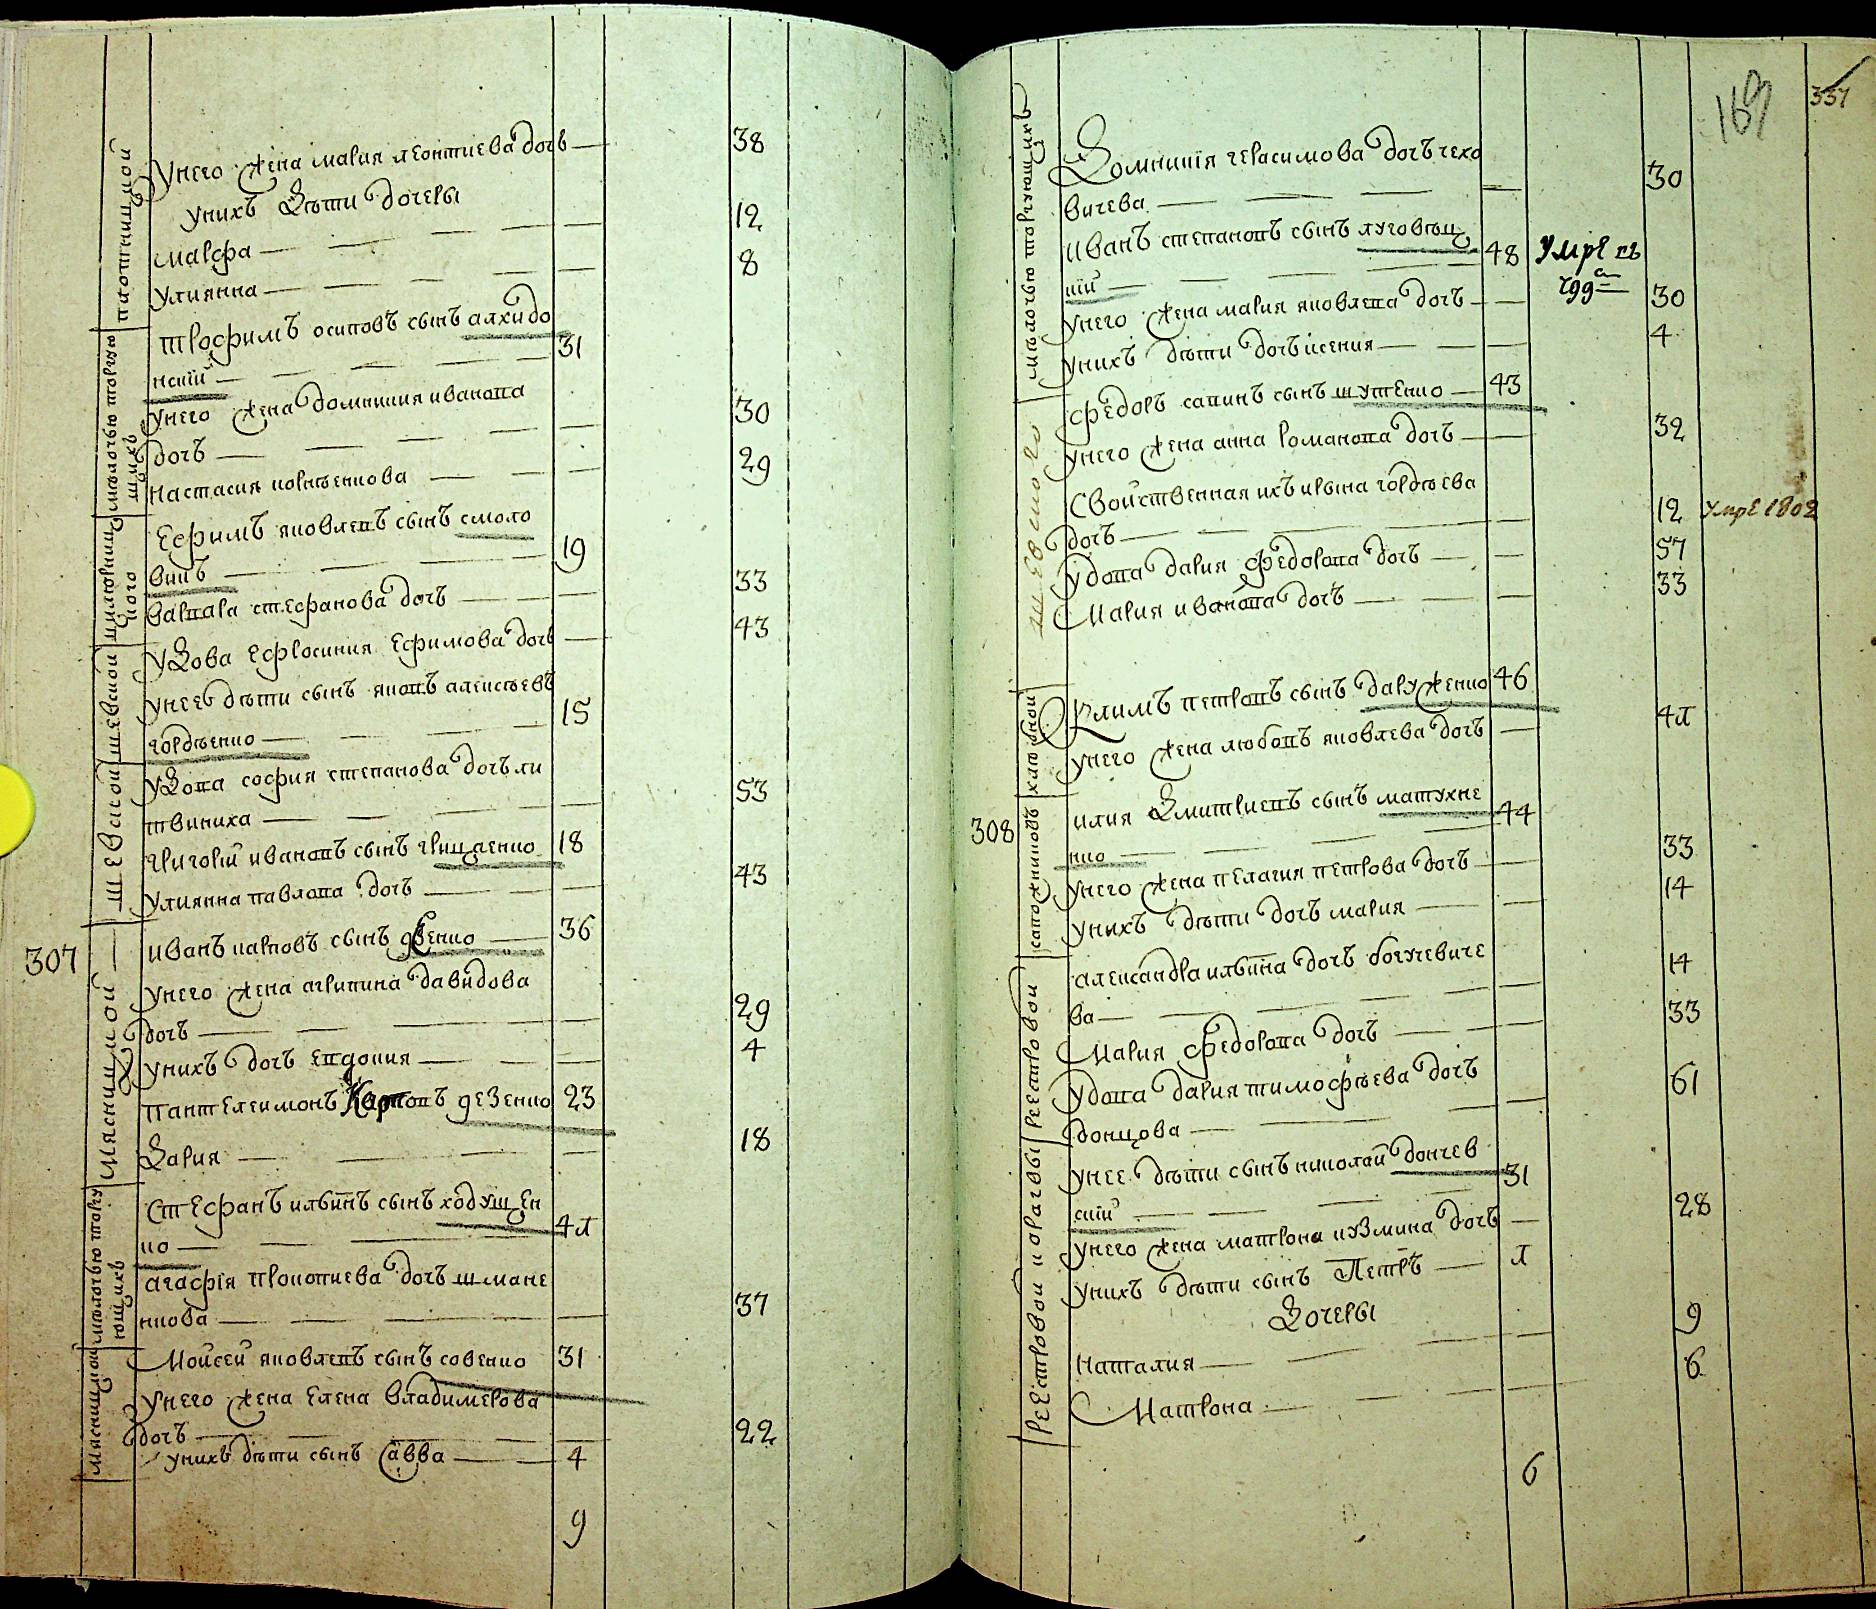 плотницкой
Унего жена мария леонтиева дочь 38
унихъ дѣти дочеры
марфа 12
улиянна 8
мѣлочью торгую
щихъ
трофимъ осиповъ сынъ алхидо
нский 31
унего жена домникия иванова
дочь 30
настасия корнѣенкова 29
ного
Ефимъ яковлевъ сынъ смоло
викъ 19
варвара стефанова дочь 33
шевской
удова ефросиния ефимова дочь 43
унеев дѣти сынъ яковъ алексѣевъ
гордѣенко 15
шевской
удова софия степанова дочь ли
твиниха 53
григорий ивановъ сынъ грищенко 18
улиянна павлова дочь 43
307
мясницкой
иванъ карповъ сынъ 36
унего жена агрипина давидова
дочь 29
унихъ дочь евдокия 4
пантелеимонъ Карповъ дезенко 23
дария 18
мѣлочью торгу
ющихъ
стефанъ ильинъ сынъ ходущен
ко 41
агафiя прокопиева дочь шмане
нкова 37
мясницкой
Мойсей яковлевъ сынъ совенко 31
унего жена елена владимерова
дочь 22
унихъ дѣти сынъ савва 4
9
169 337
мѣлочью торгующихъ
Домникiя герасимова дочь чехо
вичева 30
иванъ степановъ сынъ луговец
кiй 48 умре въ
799
унего жена мария яковлева дочь 30
унихъ дѣти дочь ксения 4
шевского
федоръ савинъ сынъ шутенко 43
унего жена анна романова дочь 32
Свойственная ихъ ирина гордѣева
дочь 12 умре 1802
удова дария федорова дочь 57
Мария иванова дочь 33
хлѣбной
Климъ петровъ сынъ даруженко 46
унего жена любовъ яковлева дочь 41
308
сапожниковъ
илия дмитриевъ сынъ матухне
нко 44
унего жена пелагия петрова дочь 33
унихъ дѣти дочь мария 14
реестровой
александра ильина дочь богучевиче
ва 14
Мария федорова дочь 33
удова дария тимофѣева дочь
донцова 61
реестровой корагвы
унее дѣти сынъ николай дончев
ский 31
унего жена матрона кузмина дочь 28
унихъ дѣти сынъ Петръ 1
дочеры
наталия 9
Матрона 6
6